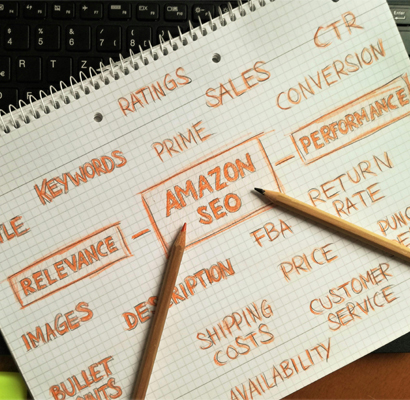 CTR
RATINGS
SALES
CONVERSION
PRIME
PERFORMANCE
KEYWORDS
AMAZON
SEO
RETURN
RATE
RELEVANCE
FBA
PRICE
IMAGES
DESCRIPTION
CUSTOMER
SERVICE
SHIPPING
COSTS
BULLET
AVAILABILITY